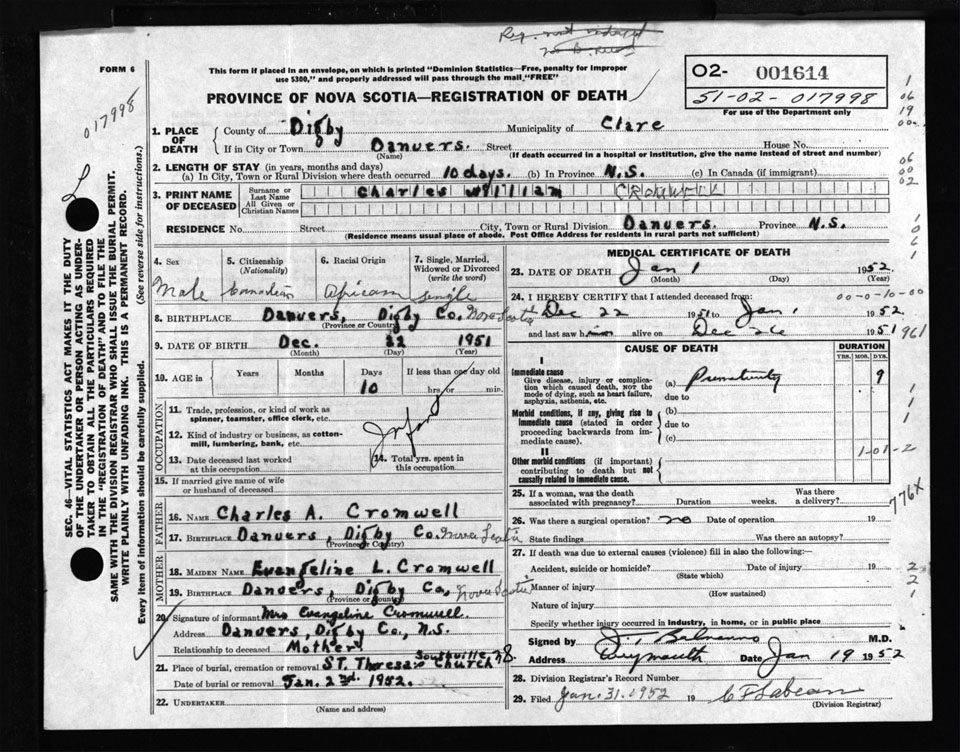 FORM 6
This form if placed in an envelope, on which is printed "Dominion Statistics—Free, penalty for improper
use $300," and properly addressed will pass through the mail "FREE"
PROVINCE OF NOVA SCOTIA—REGISTRATION OF DEATH
02- 001614
51-02-017998
For use of Department Only
017998
SEC. 46—VITAL STATISTICS ACT MAKES IT THE DUTY
OF THE UNDERTAKER OR PERSON ACTING AS UNDER-
TAKER TO OBTAIN ALL THE PARTICULARS REQUIRED
IN THE "REGISTRATION OF DEATH" AND TO FILE THE
SAME WITH THE DIVISION REGISTRAR WHO SHALL ISSUE THE BURIAL PERMIT.
WRITE PLAINLY WITH UNFADING INK. THIS IS A PERMANENT RECORD.
Every item of information should be carefully supplied. (See reverse side for instructions.)
1. PLACE OF DEATH
County of Digby Municipality of Clare
If in City or Town Danvers. Street House No.
(Name) (If death occurred in a hospital or institution, give the name instead of street and number)
2. LENGTH OF STAY (in years, months and days)
(a) In City, Town or Rural Division where death occurred 10 days. (b) In Province N.S. (c) In Canada (if immigrant)
3. PRINT NAME OF DECEASED
Surname or Last Name Charles William CROMWELL
All Given or Christian Names
RESIDENCE No. Street City, Town or Rural Division Danvers. Province N.S.
(Residence means usual place of abode. Post Office Address for residents in rural parts not sufficient)
4. Sex 5. Citizenship (Nationality) 6. Racial Origin 7. Single, Married, Widowed or Divorced (write the word)
Male Canadian African Single
8. BIRTHPLACE Danvers, Digby Co. Nova Scotia
(Province or Country)
9. DATE OF BIRTH Dec. 22 1951
(Month) (Day) (Year)
10. AGE in Years Months Days If less than one day old
10 hrs. or min.
OCCUPATION
11. Trade, profession, or kind of work as
spinner, teamster, office clerk, etc.
12. Kind of industry or business, as cotton-
mill, lumbering, bank, etc.
Infant
13. Date deceased last worked at this occupation
14. Total yrs. spent in this occupation
15. If married give name of wife
or husband of deceased
FATHER
16. NAME Charles A. Cromwell
17. BIRTHPLACE Danvers, Digby Co. Nova Scotia
(Province or Country)
MOTHER
18. MAIDEN NAME Evangeline L. Cromwell
19. BIRTHPLACE Danvers, Digby Co. Nova Scotia
(Province or Country)
20. Signature of informant Mrs Evangeline Cromwell.
Address Danvers, Digby Co., N.S.
Relationship to deceased Mother
21. Place of burial, cremation or removal ST. Theresa's Church Southville, N.S.
Date of burial or removal Jan. 2nd. 1952.
22. UNDERTAKER
(Name and address)
MEDICAL CERTIFICATE OF DEATH
23. DATE OF DEATH Jan 1 1952
(Month) (Day) (Year)
24. I HEREBY CERTIFY that I attended deceased from: 00-0-10-00
Dec 22 1951 to Jan 1 1952
and last saw him alive on Dec 26 1951
961
CAUSE OF DEATH DURATION
YRS. MOS. DYS.
I
Immediate cause
Give disease, injury or complica-
tion which caused death, NOT the
mode of dying, such as heart failure,
asphyxia, asthenia, etc.
(a) Prematurity 9
due to
Morbid conditions, if any, giving rise to
immediate cause (stated in order
proceeding backwards from im-
mediate cause).
(b)
due to
(c)
1-01-2
II
Other morbid conditions (if important)
contributing to death but not
causally related to immediate cause.
776X
25. If a woman, was the death associated with pregnancy? Duration weeks. Was there a delivery?
26. Was there a surgical operation? no Date of operation 19
State findings Was there an autopsy?
27. If death was due to external causes (violence) fill in also the following:—
Accident, suicide or homicide? Date of injury 19
(State which)
Manner of injury
(How sustained)
Nature of injury
Specify whether injury occurred in industry, in home, or in public place
Signed by M.D.
Address Weymouth Date Jan 19 1952
28. Division Registrar's Record Number
29. Filed Jan. 31. 1952 19
(Division Registrar)